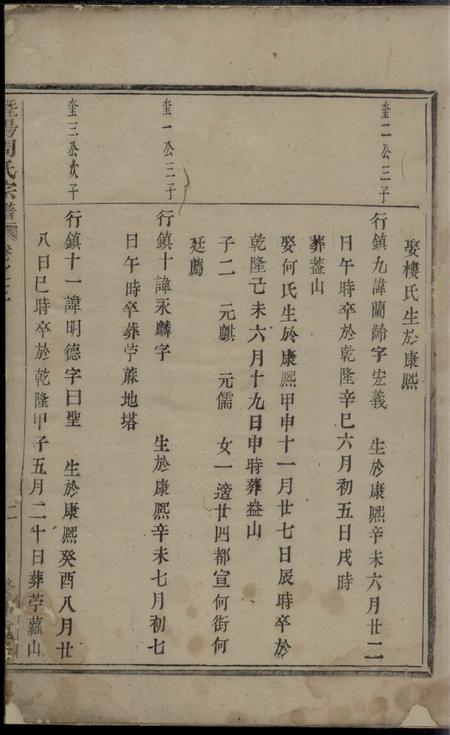 娶樓氏生於康熙
奎二公三子
行鎮九諱蘭齡字宏義 生於康熙辛未六月廿二
日午時卒於乾隆辛巳六月初五日戌時
葬盎山
娶何氏生於康熙甲申十一月廿七日辰時卒於
乾隆己未六月十九日申時葬盎山
子二 元麒 元儒 女一適廿四都宣何街何
廷薦
奎一公三子
行鎮十諱永麟字 生於康熙辛未七月初七
日午時卒葬苧蔴地塔
奎三公次子
行鎮十一諱明德字曰聖 生於康熙癸酉八月廿
八日巳時卒於乾隆甲子五月二十日葬苧蘿山
暨陽周氏宗譜